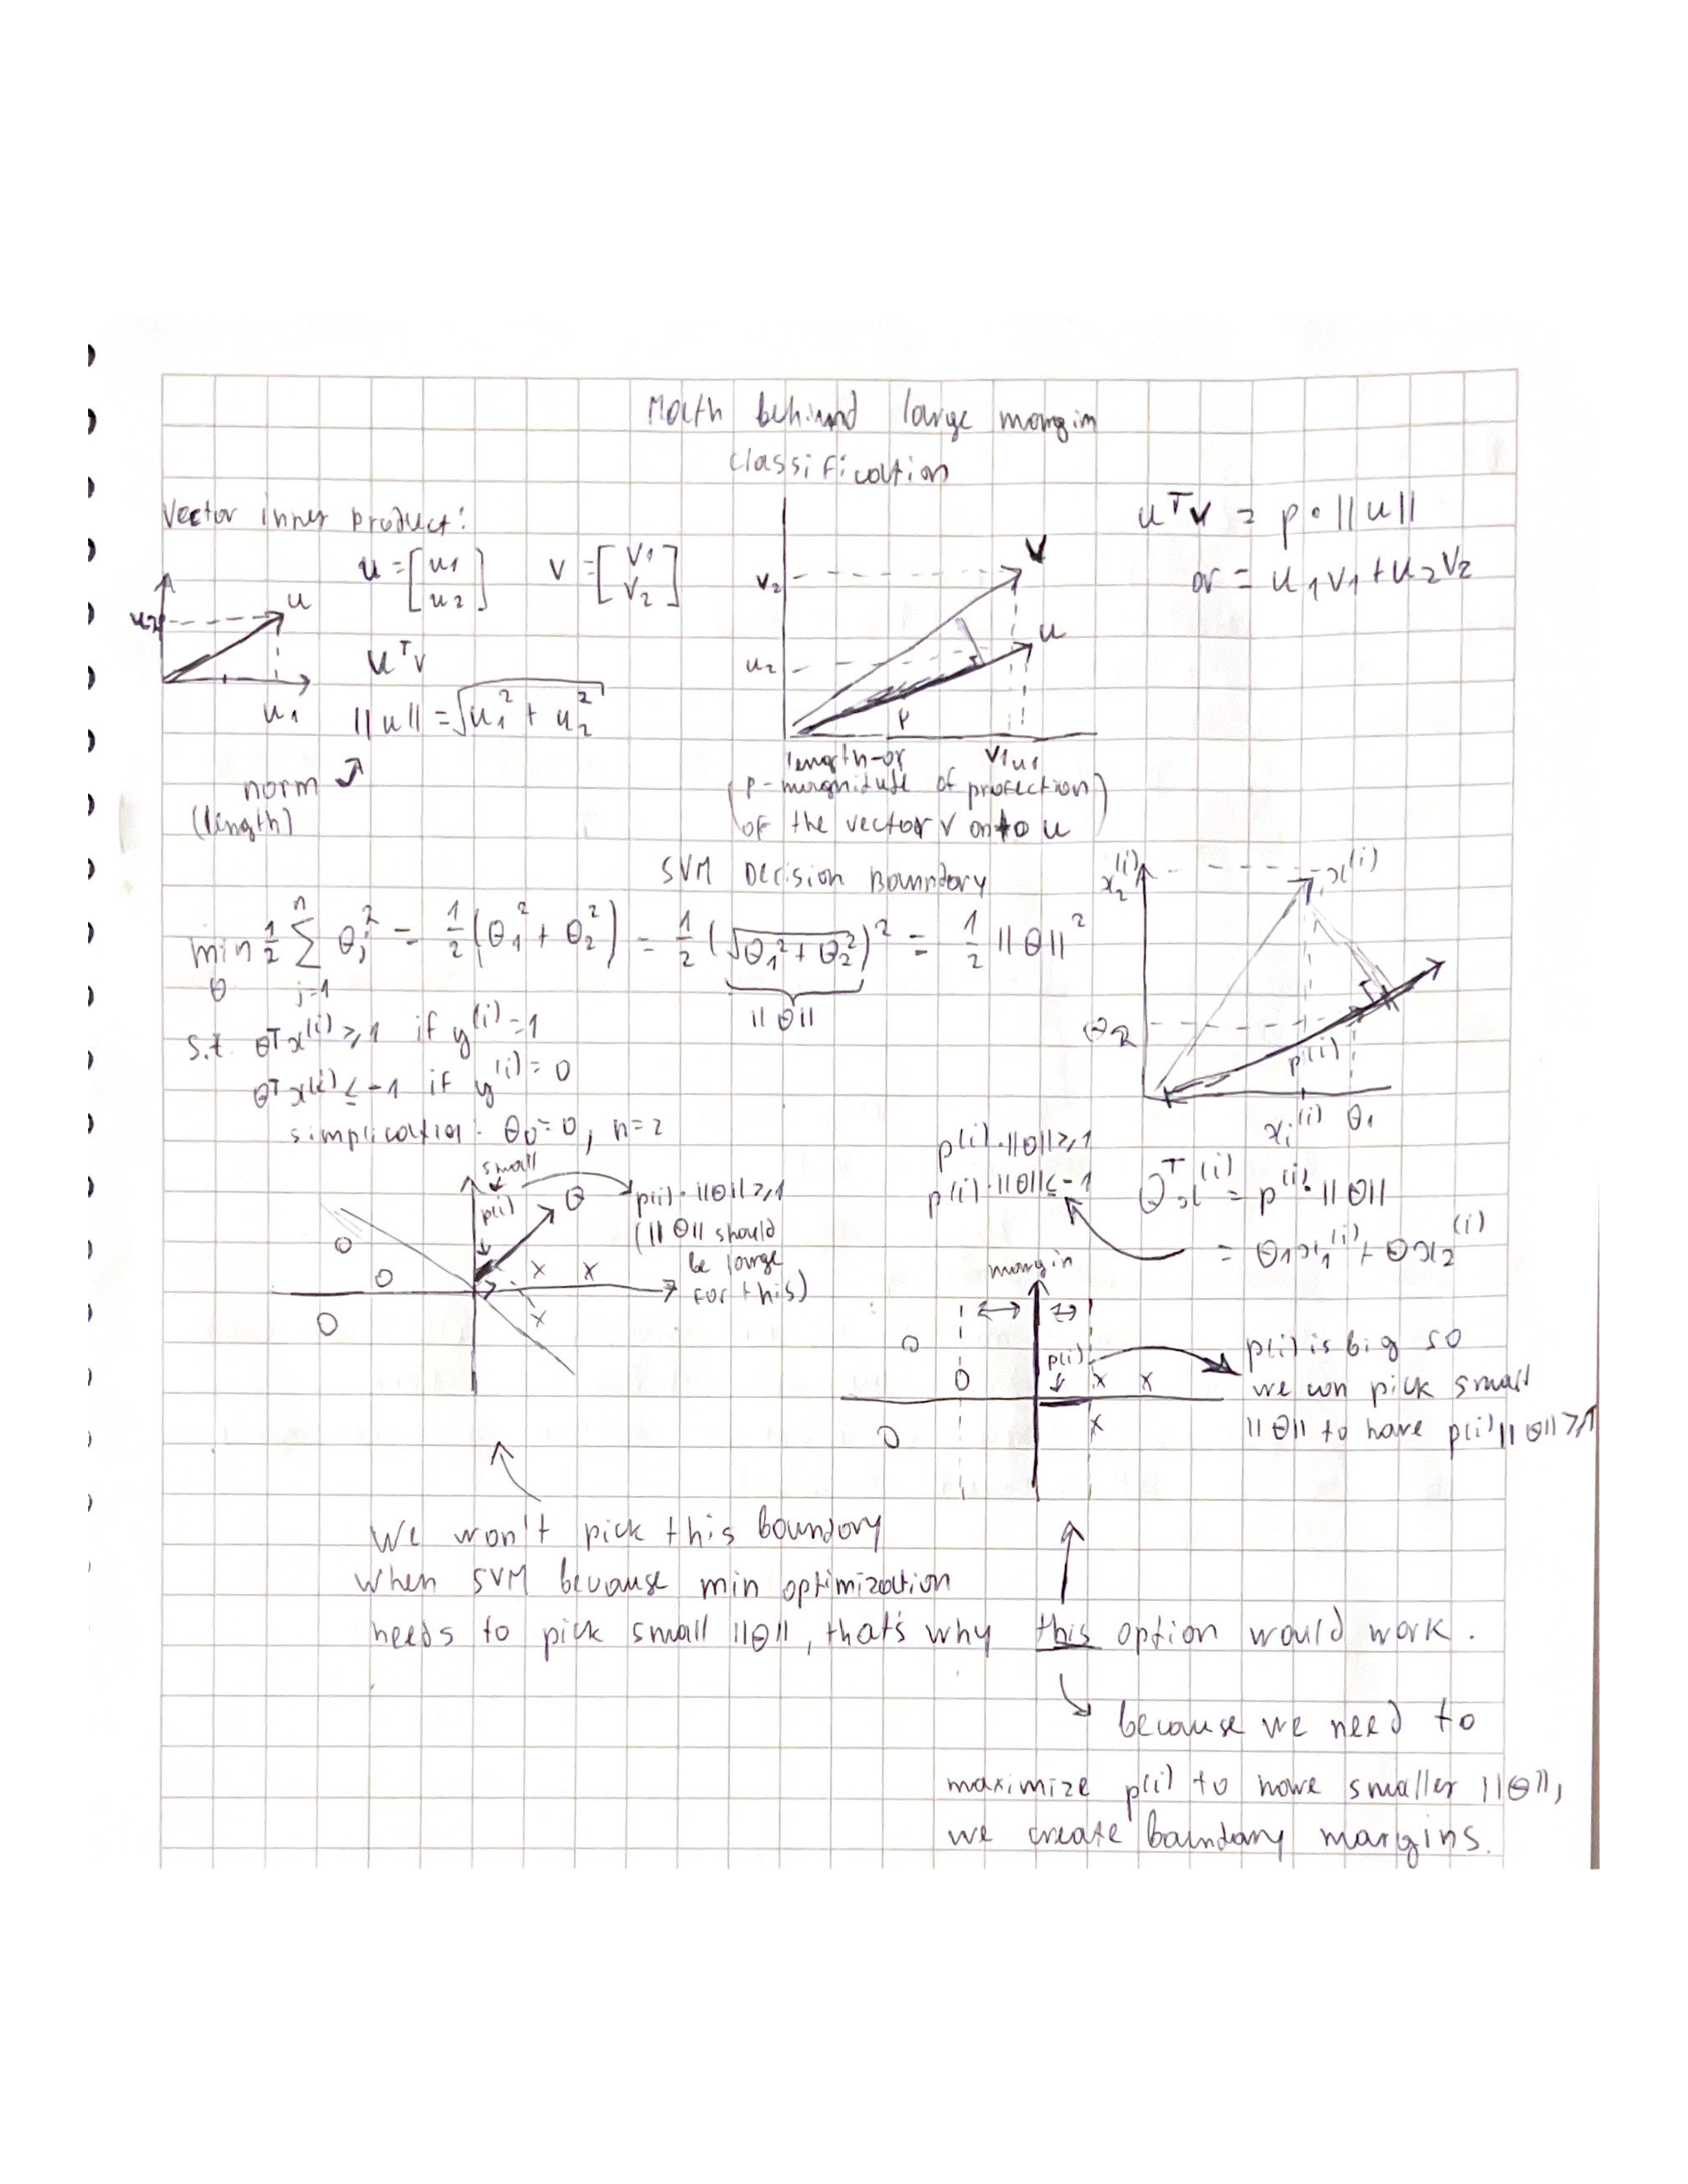 Math behind large margin
classification
Vector inner product:
u = [u1 u2] v = [v1 v2]
u2
u
u1
uᵀv
||u|| = √(u1² + u2²)
norm
(length)
v2
v
u2
u
p
v1 u1
length or
(p - magnitude of projection)
of the vector v onto u
uᵀv = p · ||u||
or = u1v1 + u2v2
SVM Decision Boundary
min θ 1/2 Σ j=1 n θj² = 1/2 (θ1² + θ2²) = 1/2 (√(θ1² + θ2²))² = 1/2 ||θ||²
||θ||
s.t. θᵀx(i) ≥ 1 if y(i) = 1
θᵀx(i) ≤ -1 if y(i) = 0
simplication: θ0 = 0, n = 2
x2(i)
x(i)
θ2
p(i)
xi(i) θ1
p(i) · ||θ|| ≥ 1
p(i) · ||θ|| ≤ -1
θᵀx(i) = p(i) · ||θ||
= θ1x1(i) + θx2(i)
small
p(i)
θ
p(i) · ||θ|| ≥ 1
(||θ|| should
be large
for this)
O O O
x x x
margin
p(i)
O O O
x x x
p(i) is big so
we can pick small
||θ|| to have p(i)||θ|| ≥ 1
We won't pick this boundary
when SVM because min optimization
needs to pick small ||θ||, that's why this option would work.
because we need to
maximize p(i) to have smaller ||θ||,
we create boundary margins.